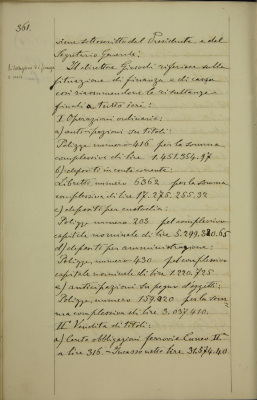 361.
sione sottoscritto dal Presidente e dal
Segretario Generale;
Il direttore riferisce sulla
situazione di finanza e di cassa
così riassumendone le risultanze
finali a tutto ieri:
I Operazioni ordinarie:
a) anticipazioni su titoli:
Polizze numero 416 per la somma
complessiva di lire 1.451.354.97
b) depositi in conto corrente:
Libretti numero 6362 per la somma
complessiva di lire 17.275.255.32
c) depositi per custodia:
Polizze numero 203 pel complessivo
capitale nominale di lire 5.299.320.65
d) depositi per amministrazione:
Polizze numero 430 pel complessivo
capitale nominale di lire 1.220.725
e) anticipazioni su pegno d'oggetti:
Polizze numero 159.020 per la som
ma complessiva di lire 3.037.410.
II° Vendita di titoli:
a) Conto obbligazioni ferrovie Cuneo IIª
a lire 316.- Incasso netto lire 31.574.40